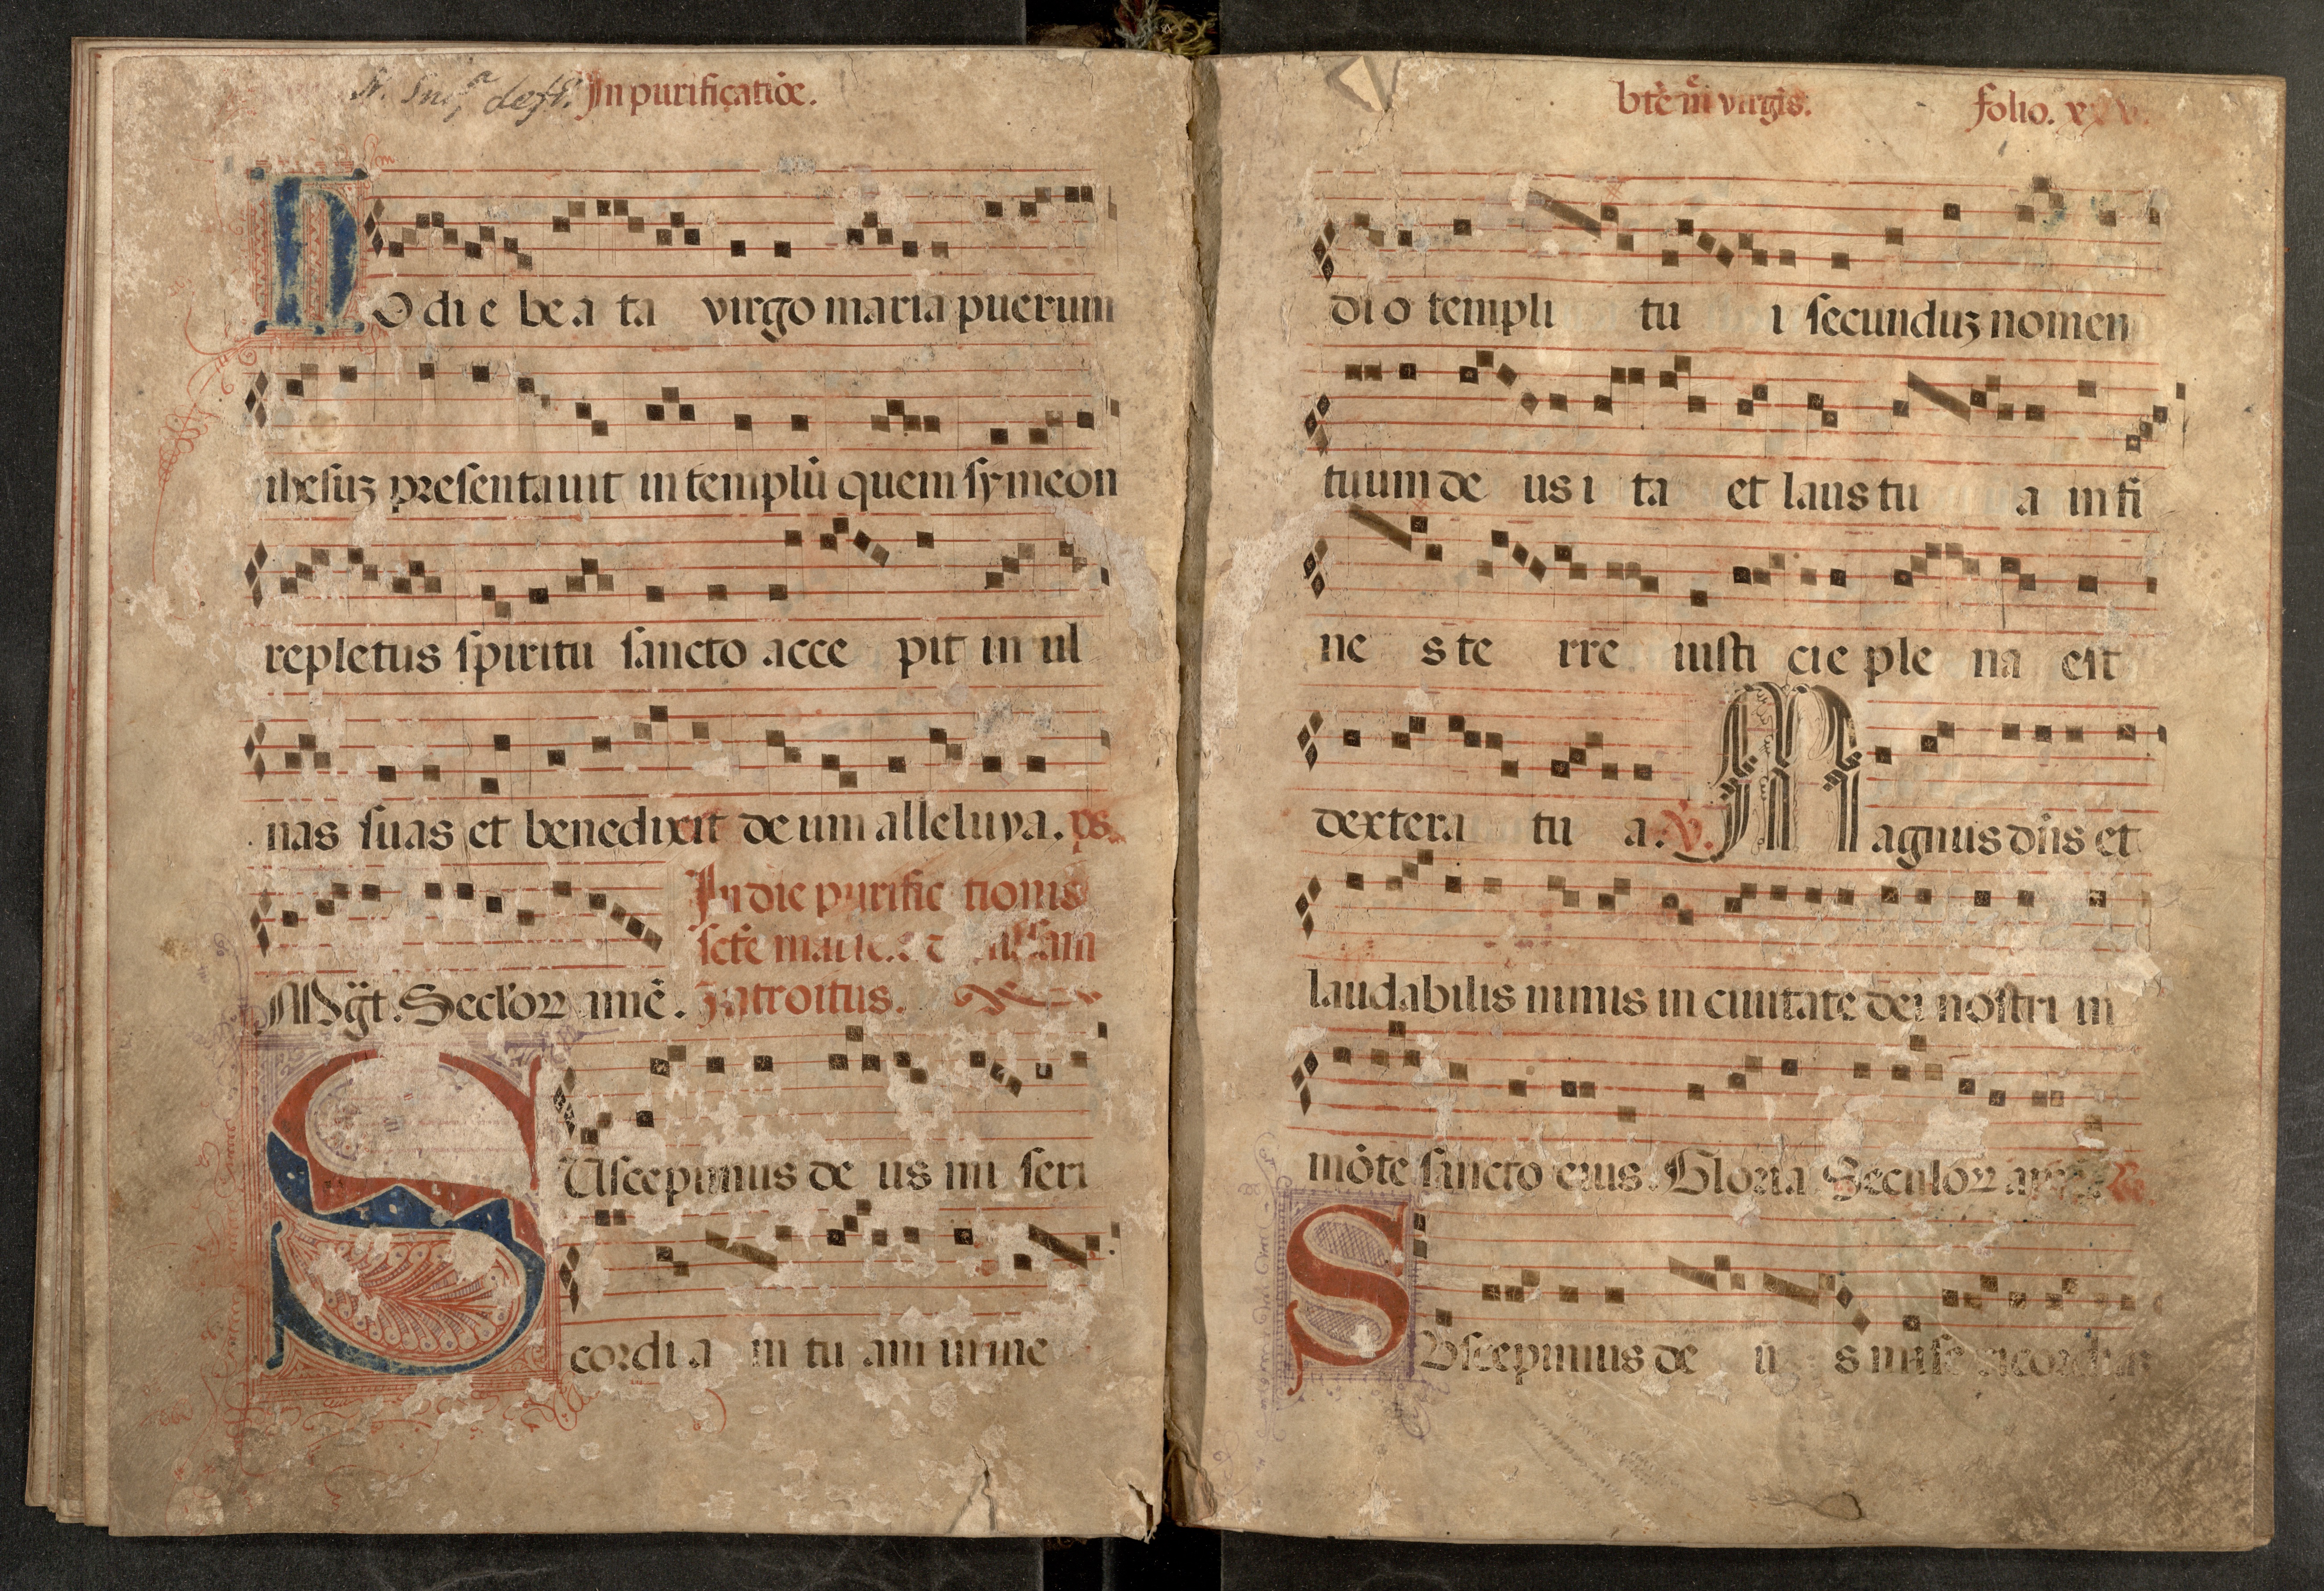 In purificatiōe.
HOdie beata virgo maria puerum
ihesuꝫ presentauit in templū quem symeon
repletus spiritu sancto acce pit in ul
nas suas et benedixit deum alleluya. ps.
In die purific tionis
scte marie
Introitus.
Mgt. Seclorꝝ amē.
SUscepimus de us mi seri
cordi a m tu am in me
bte mē virgis. folio.
dio templi tu i secunduꝫ nomen
tuum de us i ta et laus tu a in fi
ne s te rre iusti cie ple na est
dextera tu a. ꝟ. Magnus dn̄s et
laudabilis nimis in ciuitate dei nostri in
mōte sancto eius. Gloria Seculorꝝ
SUscepimus de u s mise ricordiam